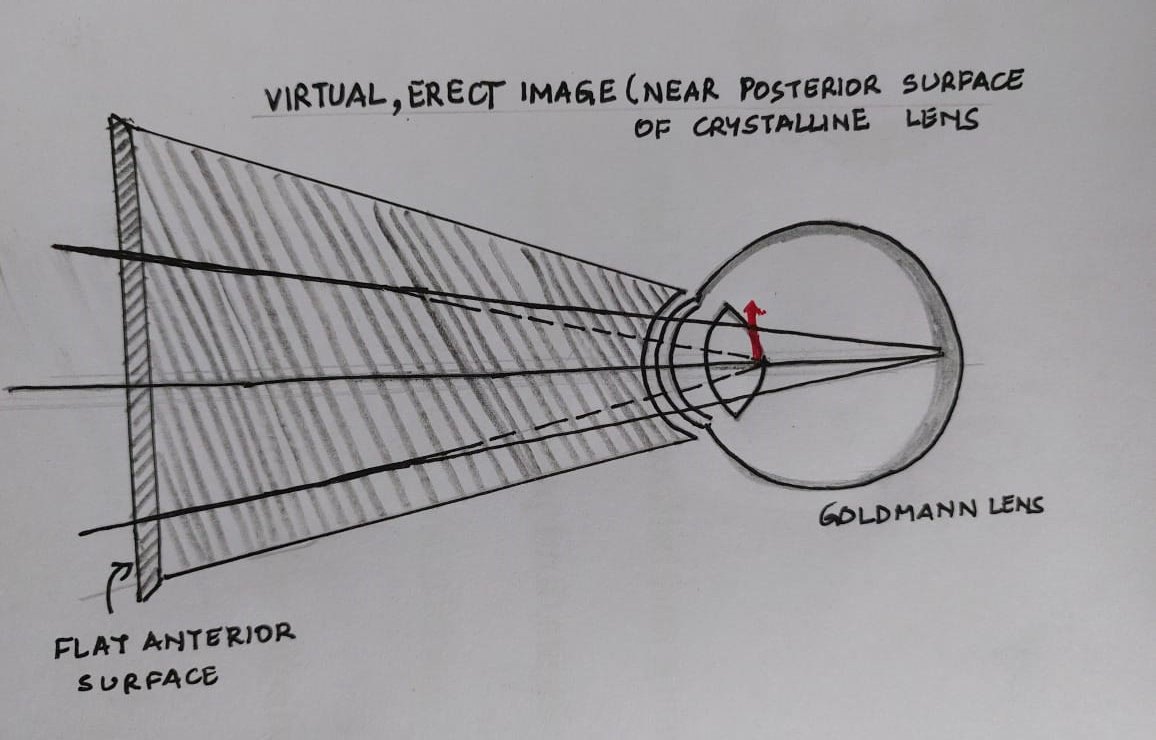 VIRTUAL, ERECT IMAGE (NEAR POSTERIOR SURFACE
OF CRYSTALLINE LENS
GOLDMANN LENS
FLAT ANTERIOR
SURFACE